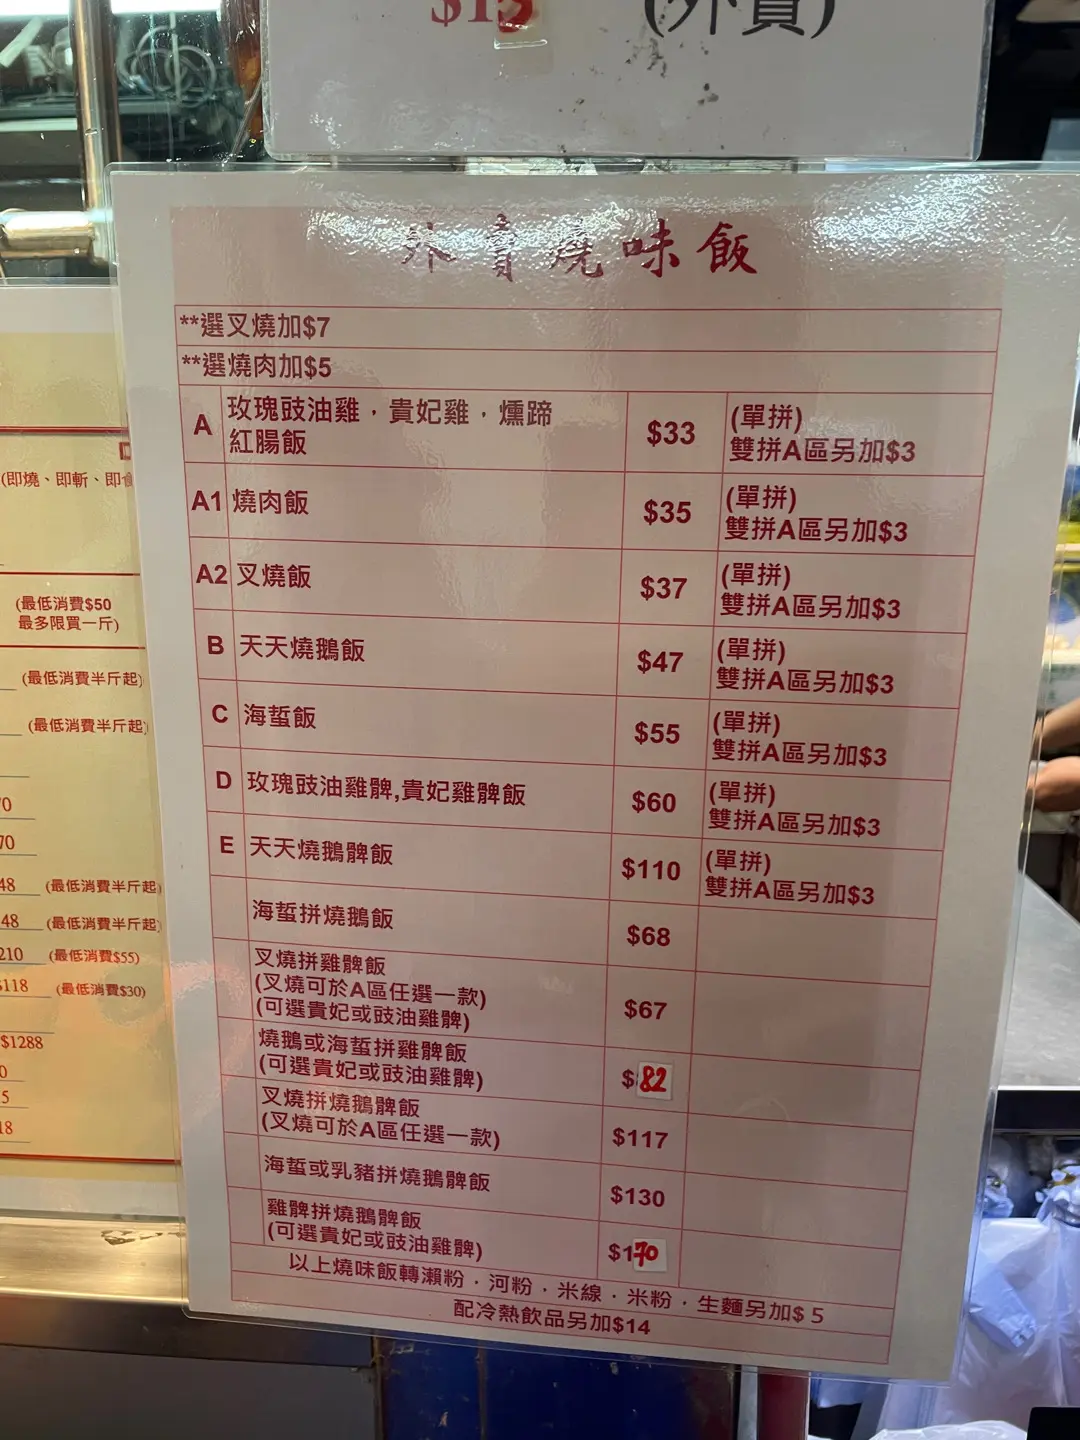 (外賣)
外賣燒味飯
**選叉燒加$7
**選燒肉加$5
A 玫瑰豉油雞，貴妃雞，燻蹄 $33 (單拼)
紅腸飯 雙拼A區另加$3
A1 燒肉飯 $35 (單拼)
雙拼A區另加$3
A2 叉燒飯 $37 (單拼)
雙拼A區另加$3
B 天天燒鵝飯 $47 (單拼)
雙拼A區另加$3
C 海蜇飯 $55 (單拼)
雙拼A區另加$3
D 玫瑰豉油雞髀,貴妃雞髀飯 $60 (單拼)
雙拼A區另加$3
E 天天燒鵝髀飯 $110 (單拼)
雙拼A區另加$3
海蜇拼燒鵝飯 $68
叉燒拼雞髀飯
(叉燒可於A區任選一款) $67
(可選貴妃或豉油雞髀)
燒鵝或海蜇拼雞髀飯
(可選貴妃或豉油雞髀) $82
叉燒拼燒鵝髀飯
(叉燒可於A區任選一款) $117
海蜇或乳豬拼燒鵝髀飯 $130
雞髀拼燒鵝髀飯
(可選貴妃或豉油雞髀) $170
以上燒味飯轉瀨粉．河粉．米線．米粉．生麵另加$5
配冷熱飲品另加$14
(即燒、即斬、即
(最低消費$50
最多限買一斤)
(最低消費半斤起)
(最低消費半斤起)
70
48 (最低消費半斤起)
48 (最低消費半斤起)
210 (最低消費$55)
$118 (最低消費$30)
$1288